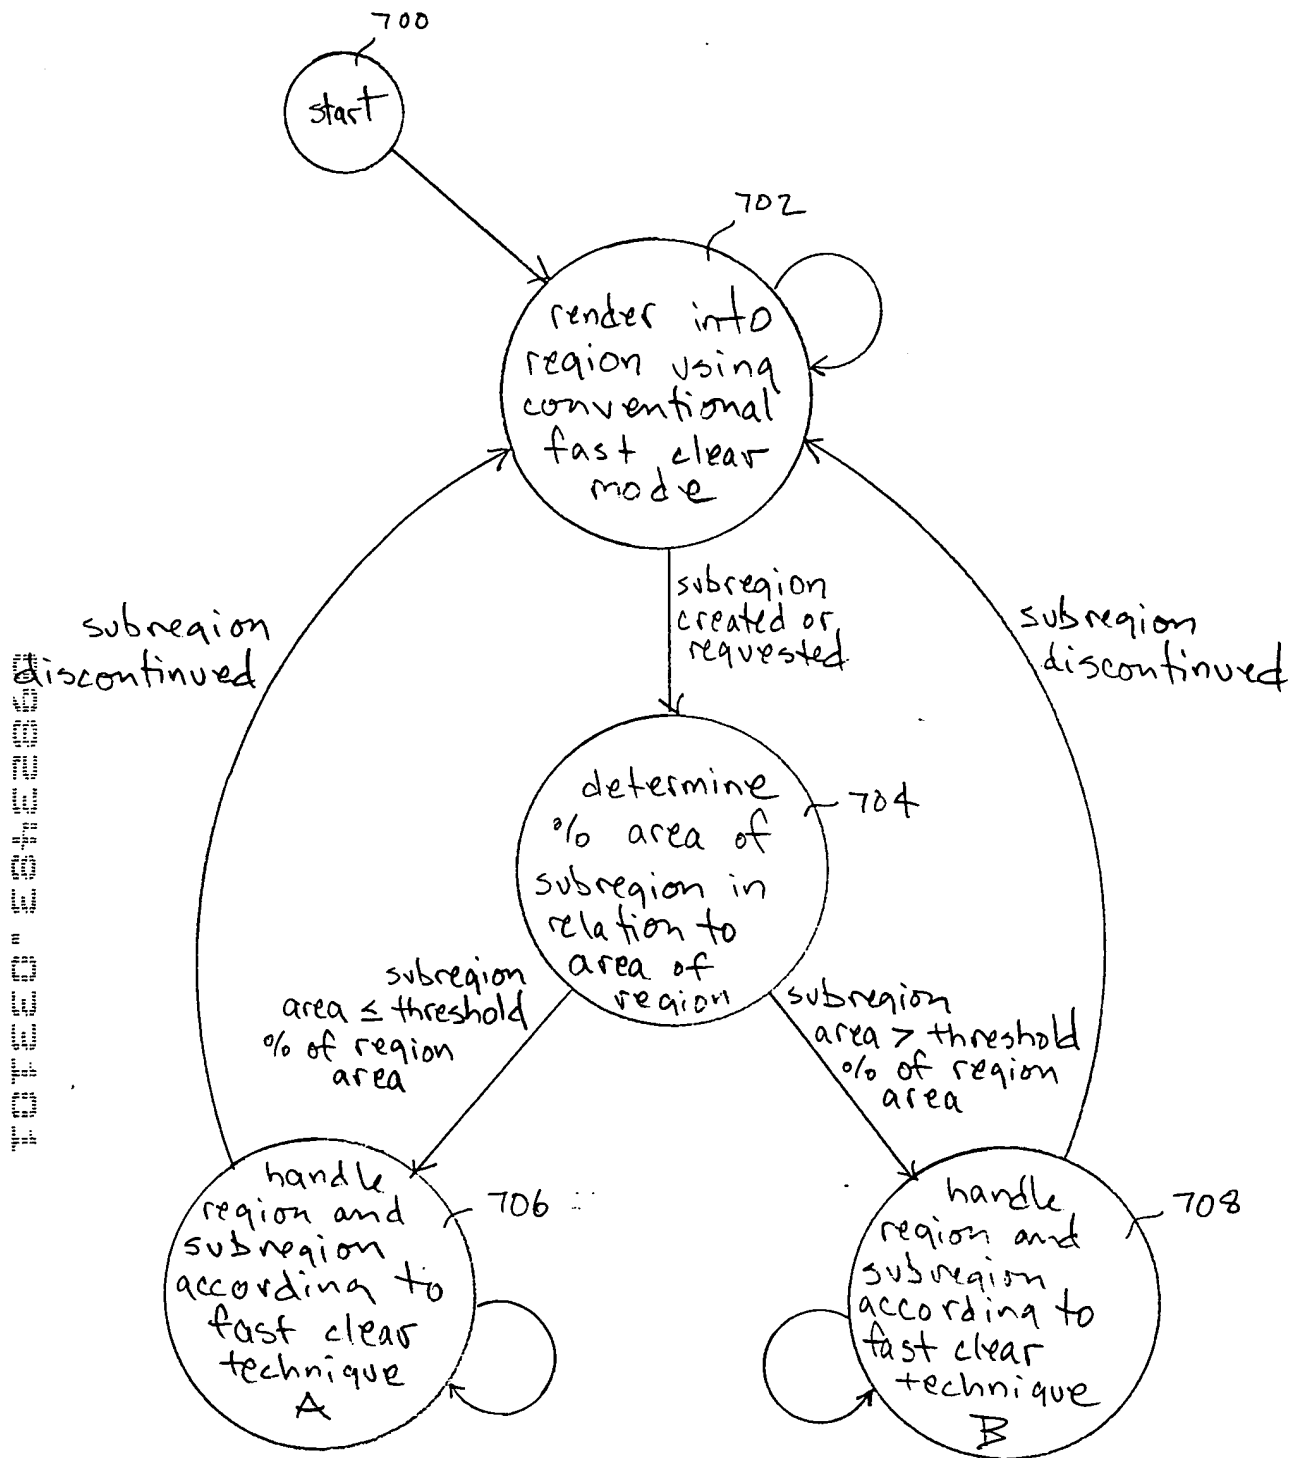 700
start
702
render into
region using
conventional
fast clear
mode
subregion
created or
requested
subregion
discontinued
subregion
discontinued
704
determine
% area of
subregion in
relation to
area of
region
subregion
area ≤ threshold
% of region
area
subregion
area > threshold
% of region
area
706
handle
region and
subregion
according to
fast clear
technique
A
708
handle
region and
subregion
according to
fast clear
technique
B